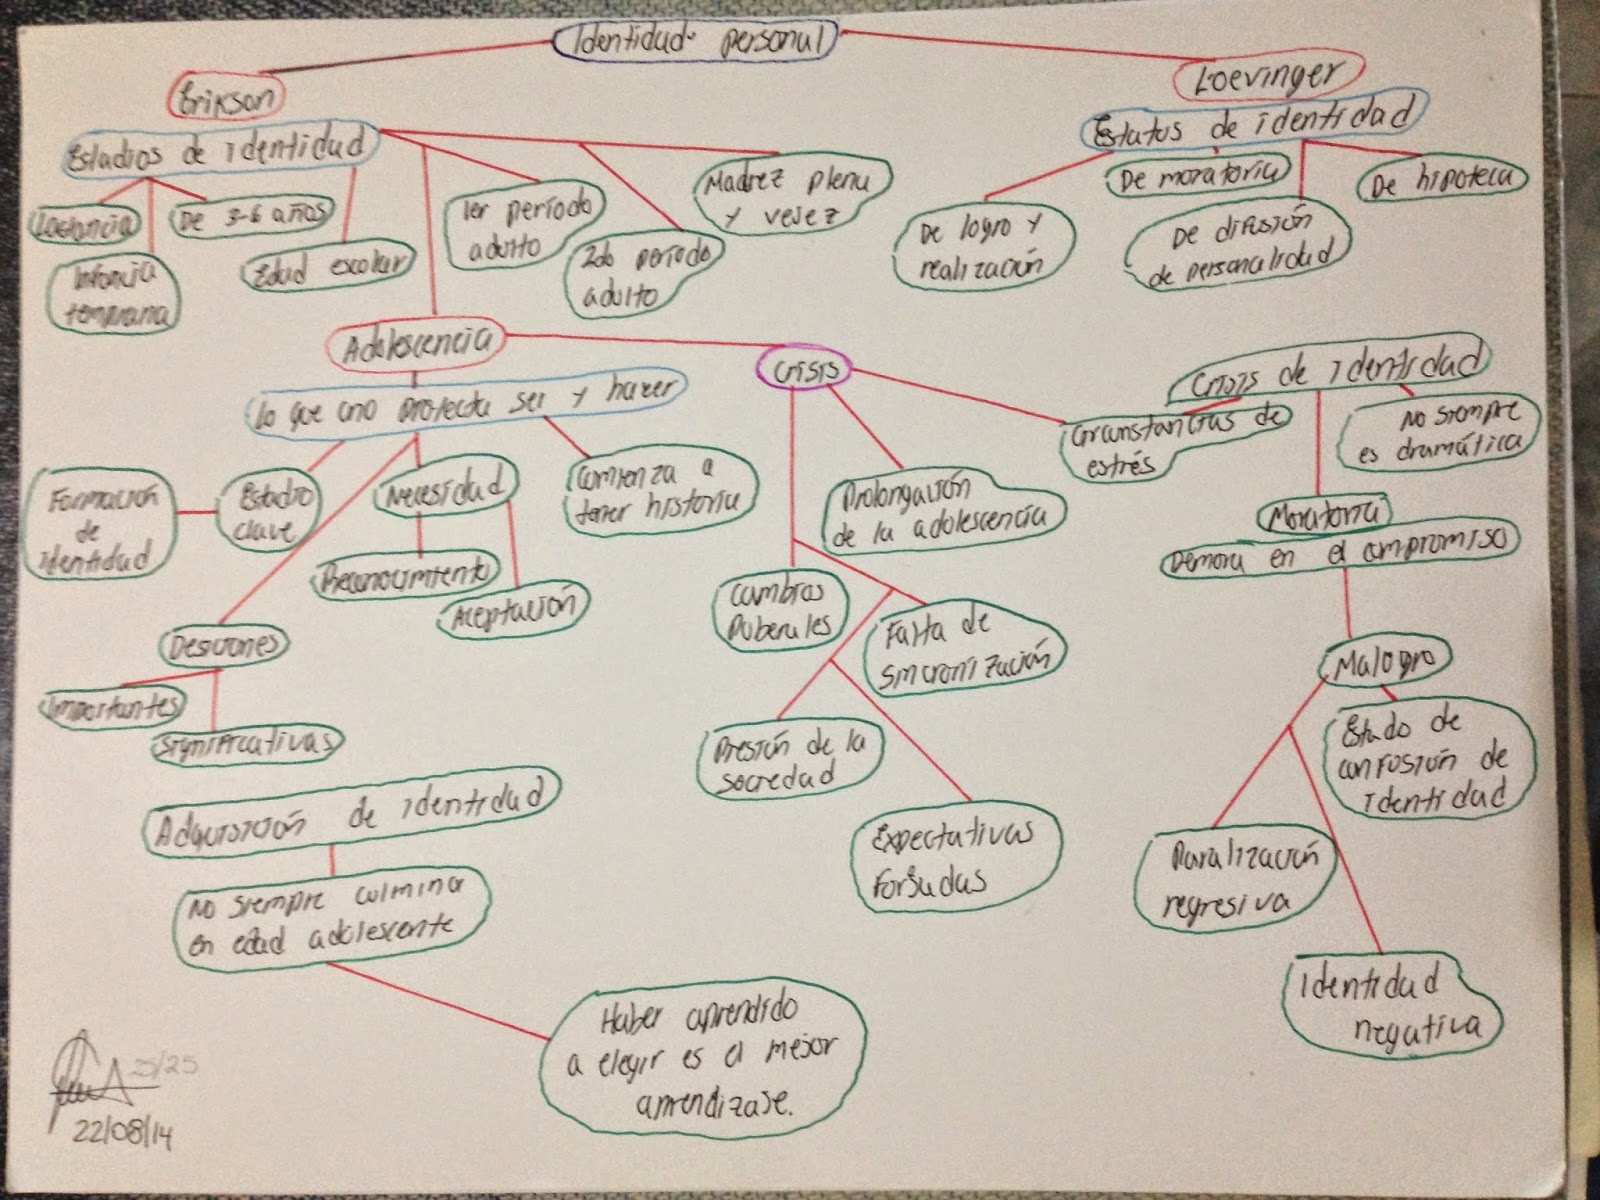 Identidad personal
Erikson
Loevinger
Estadios de identidad
Estatus de identidad
Lactancia
De 3-6 años
Infancia
temprana
Edad escolar
1er período
adulto
2do período
adulto
Madrez plena
y vejez
De logro y
realización
De moratoria
De difusión
de personalidad
De hipoteca
Adolescencia
Crisis
Lo que uno proyecta ser y hacer
Formación
de
identidad
Estadio
clave
Necesidad
Reconocimiento
Aceptación
Comienza a
tener historia
Desiciones
Importantes
Significativas
Prolongación
de la adolescencia
Cambios
Puberales
Falta de
sincronización
Presión de la
sociedad
Expectativas
Forsadas
Circunstancias de
estrés
Crisis de identidad
No siempre
es dramática
Moratoria
Demora en el compromiso
Malogro
Estado de
confusión de
identidad
Paralización
regresiva
Identidad
negativa
Adquisición de identidad
No siempre culmina
en edad adolescente
Haber aprendido
a elegir es el mejor
aprendizaje.
25/25
22/08/14